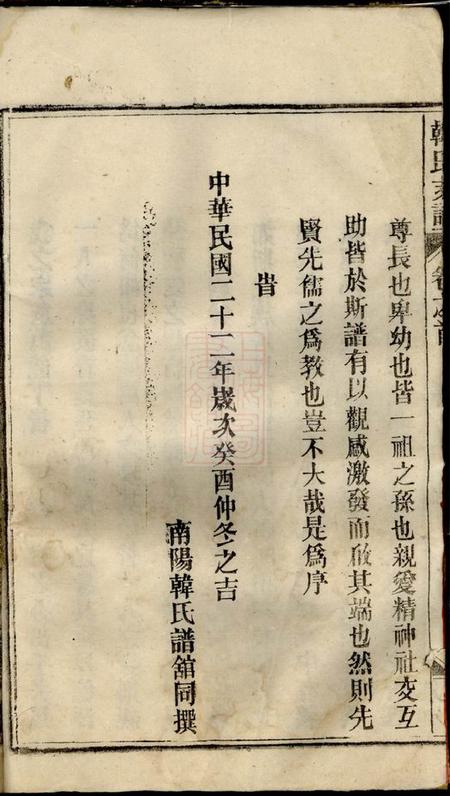 韓氏支譜 卷之首
尊長也卑幼也皆一祖之孫也親愛精神祉交互
助皆於斯譜有以觀感激發而啟其端也然則先
賢先儒之爲教也豈不大哉是爲序
旹
中華民國二十二年歲次癸酉仲冬之吉
南陽韓氏譜舘同撰